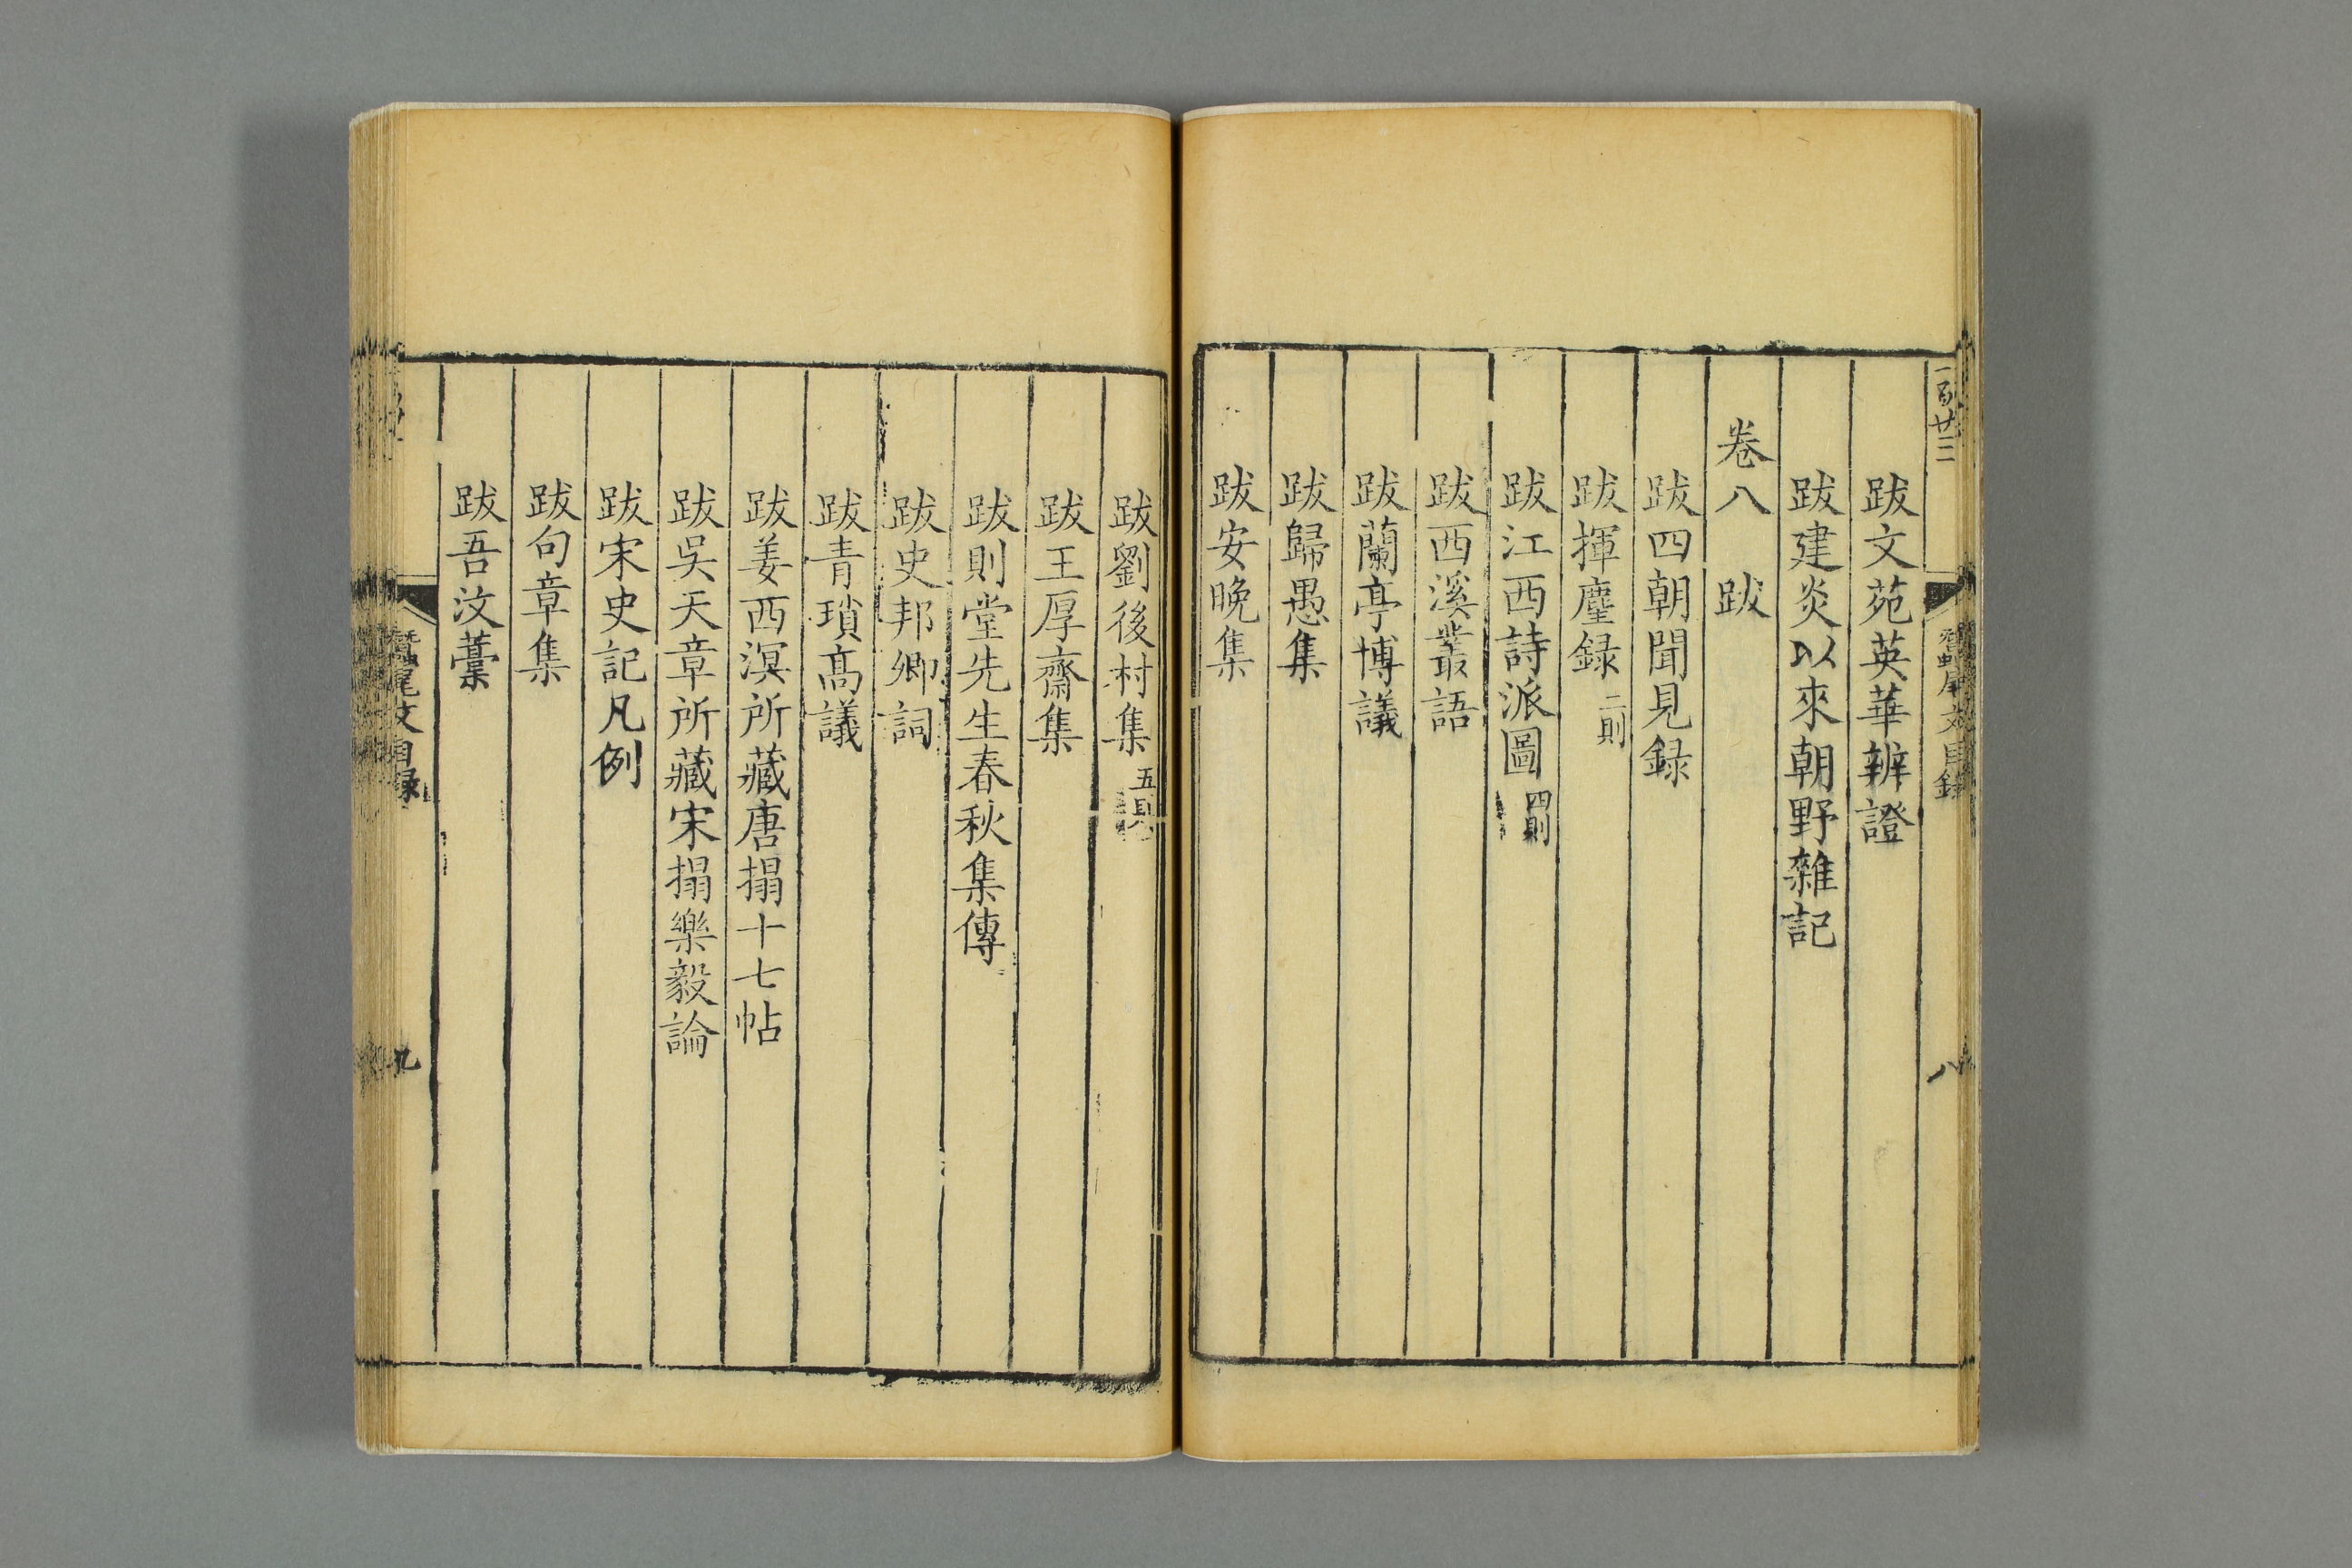 一百廿三
蠶尾文目錄
八
跋文苑英華辨證
跋建炎以來朝野雜記
卷八 跋
跋四朝聞見録
跋揮麈録二則
跋江西詩派圖四則
跋西溪叢語
跋蘭亭博議
跋歸愚集
跋安晚集
跋劉後村集五則
跋王厚齋集
跋則堂先生春秋集傳
跋史邦卿詞
跋青瑣髙議
跋姜西溟所藏唐搨十七帖
跋吳天章所藏宋搨樂毅論
跋宋史記凡例
跋句章集
跋吾汶藁
蠶尾文目録
九